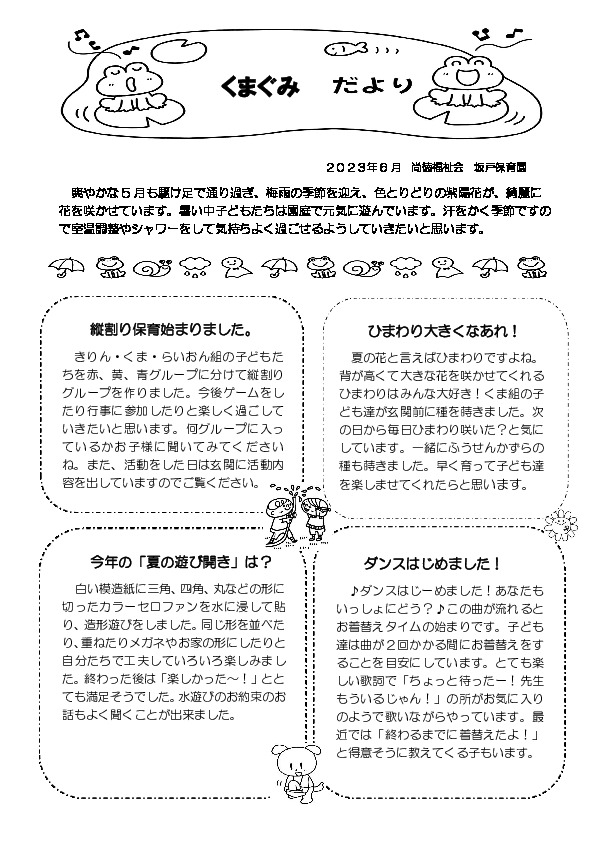 くまぐみ　だより
２０２３年６月　尚徳福祉会　坂戸保育園
爽やかな５月も駆け足で通り過ぎ、梅雨の季節を迎え、色とりどりの紫陽花が、綺麗に
花を咲かせています。暑い中子どもたちは園庭で元気に遊んでいます。汗をかく季節ですの
で室温調整やシャワーをして気持ちよく過ごせるようしていきたいと思います。
縦割り保育始まりました。
きりん・くま・らいおん組の子どもた
ちを赤、黄、青グループに分けて縦割り
グループを作りました。今後ゲームをし
たり行事に参加したりと楽しく過ごして
いきたいと思います。何グループに入っ
ているかお子様に聞いてみてください
ね。また、活動をした日は玄関に活動内
容を出していますのでご覧ください。
ひまわり大きくなあれ！
夏の花と言えばひまわりですよね。
背が高くて大きな花を咲かせてくれる
ひまわりはみんな大好き！くま組の子
ども達が玄関前に種を蒔きました。次
の日から毎日ひまわり咲いた？と気に
しています。一緒にふうせんかずらの
種も蒔きました。早く育って子ども達
を楽しませてくれたらと思います。
今年の「夏の遊び開き」は？
白い模造紙に三角、四角、丸などの形に
切ったカラーセロファンを水に浸して貼
り、造形遊びをしました。同じ形を並べた
り、重ねたりメガネやお家の形にしたりと
自分たちで工夫していろいろ楽しみまし
た。終わった後は「楽しかった～！」とと
ても満足そうでした。水遊びのお約束のお
話もよく聞くことが出来ました。
ダンスはじめました！
♪ダンスはじーめました！あなたも
いっしょにどう？♪この曲が流れると
お着替えタイムの始まりです。子ども
達は曲が２回かかる間にお着替えをす
ることを目安にしています。とても楽
しい歌詞で「ちょっと待ったー！先生
もういるじゃん！」の所がお気に入り
のようで歌いながらやっています。最
近では「終わるまでに着替えたよ！」
と得意そうに教えてくる子もいます。